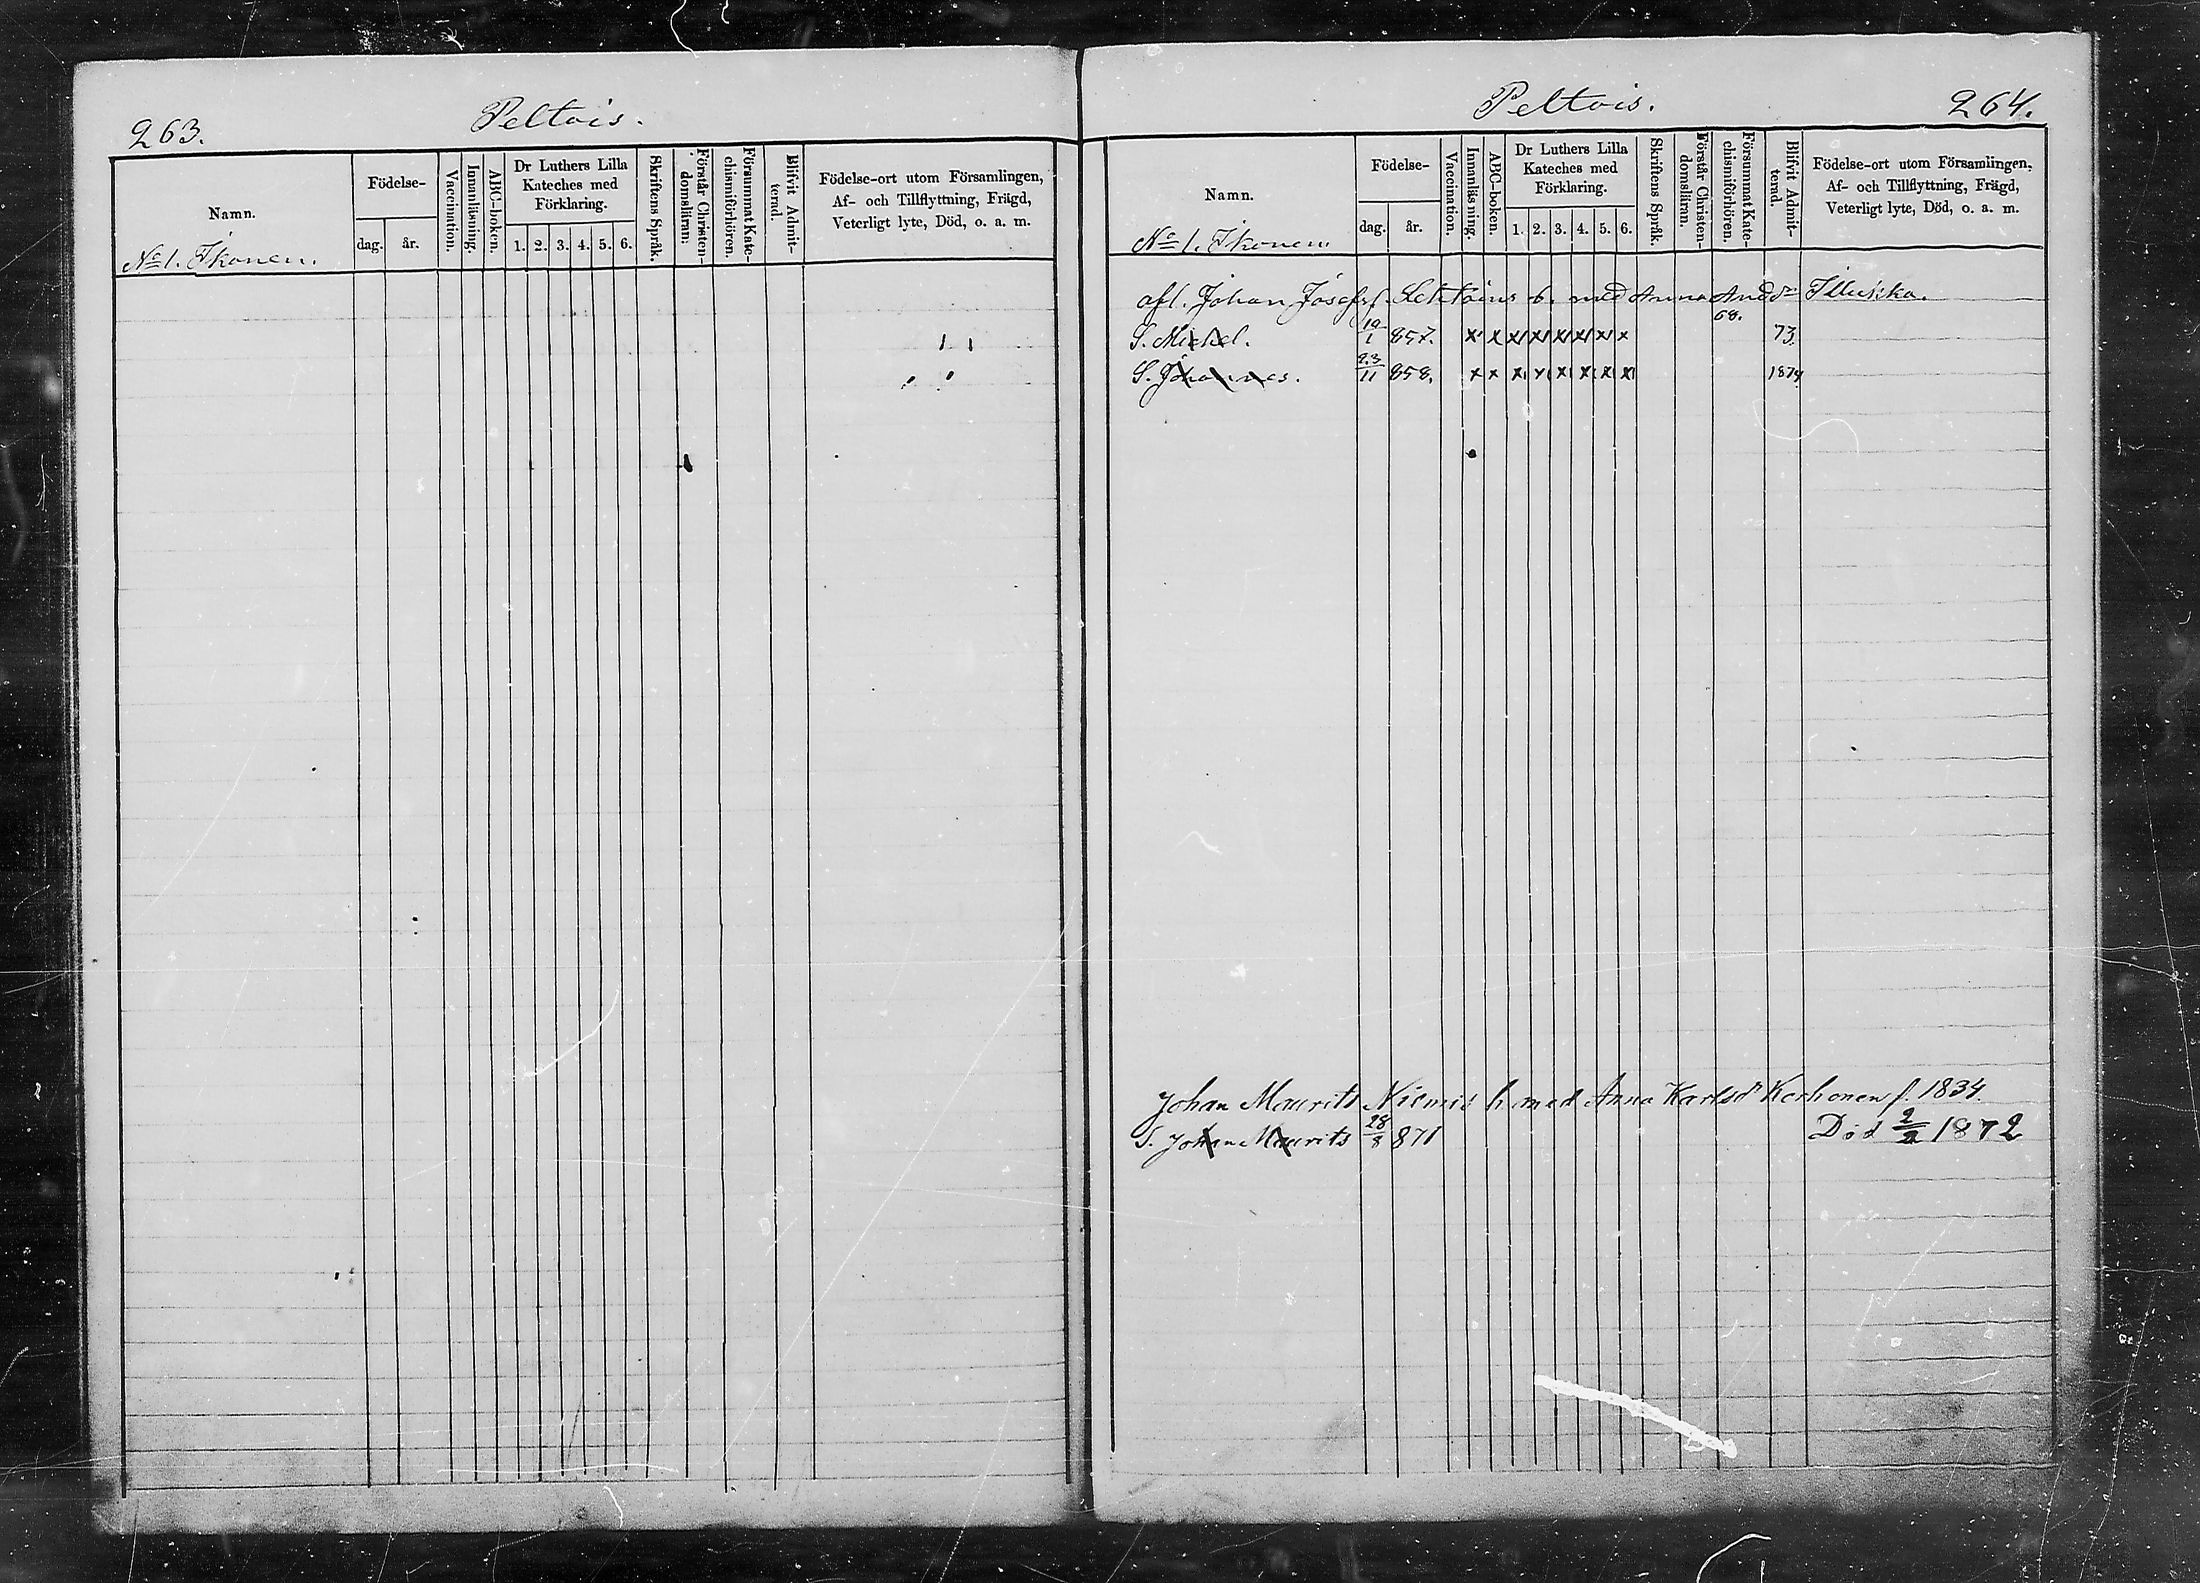 263.
Peltois.
Namn.
Födelse-
dag.
år.
Vaccination.
Innanläsning.
ABC-boken.
Dr Luthers Lilla
Kateches med
Förklaring.
1. 2. 3. 4. 5. 6.
Skriftens Språk.
Förstår Christen-
domsläran.
Försummat Kate-
chismiförhören.
Blifvit Admit-
terad.
Födelse-ort utom Församlingen,
Af- och Tillflyttning, Frägd,
Veterligt lyte, Död, o. a. m.
No 1. Ikonen.
Peltois.
264.
Namn.
Födelse-
dag.
år.
Vaccination.
Innanläsning.
ABC-boken.
Dr Luthers Lilla
Kateches med
Förklaring.
1. 2. 3. 4. 5. 6.
Skriftens Språk.
Förstår Christen-
domsläran.
Försummat Kate-
chismiförhören.
Blifvit Admit-
terad.
Födelse-ort utom Församlingen,
Af- och Tillflyttning, Frägd,
Veterligt lyte, Död, o. a. m.
No 1. Ikonen.
afl. Johan Josefs. med Anna Andsdr
68.
S. Michel. 857. x x x x x x x x 73.
S. Johannes. 23/11 858. x x x x x x x x 1874
Johan Maurits Niemis h med Anna Karlsdr Korhonen f. 1834.
S. Johan Maurits 28/8 871 Död 2/2 1872